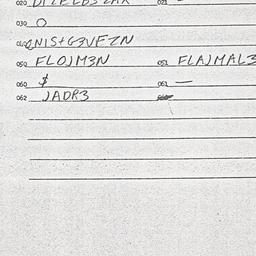 030 O
040 NIS+G3VFZN
050 FLOJM3N 051 FLAJMAL3
060 $ 061 —
062 JADR3